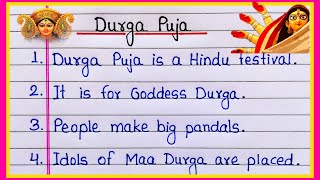 Durga Puja
1. Durga Puja is a Hindu festival.
2. It is for Goddess Durga.
3. People make big pandals.
4. Idols of Maa Durga are placed.